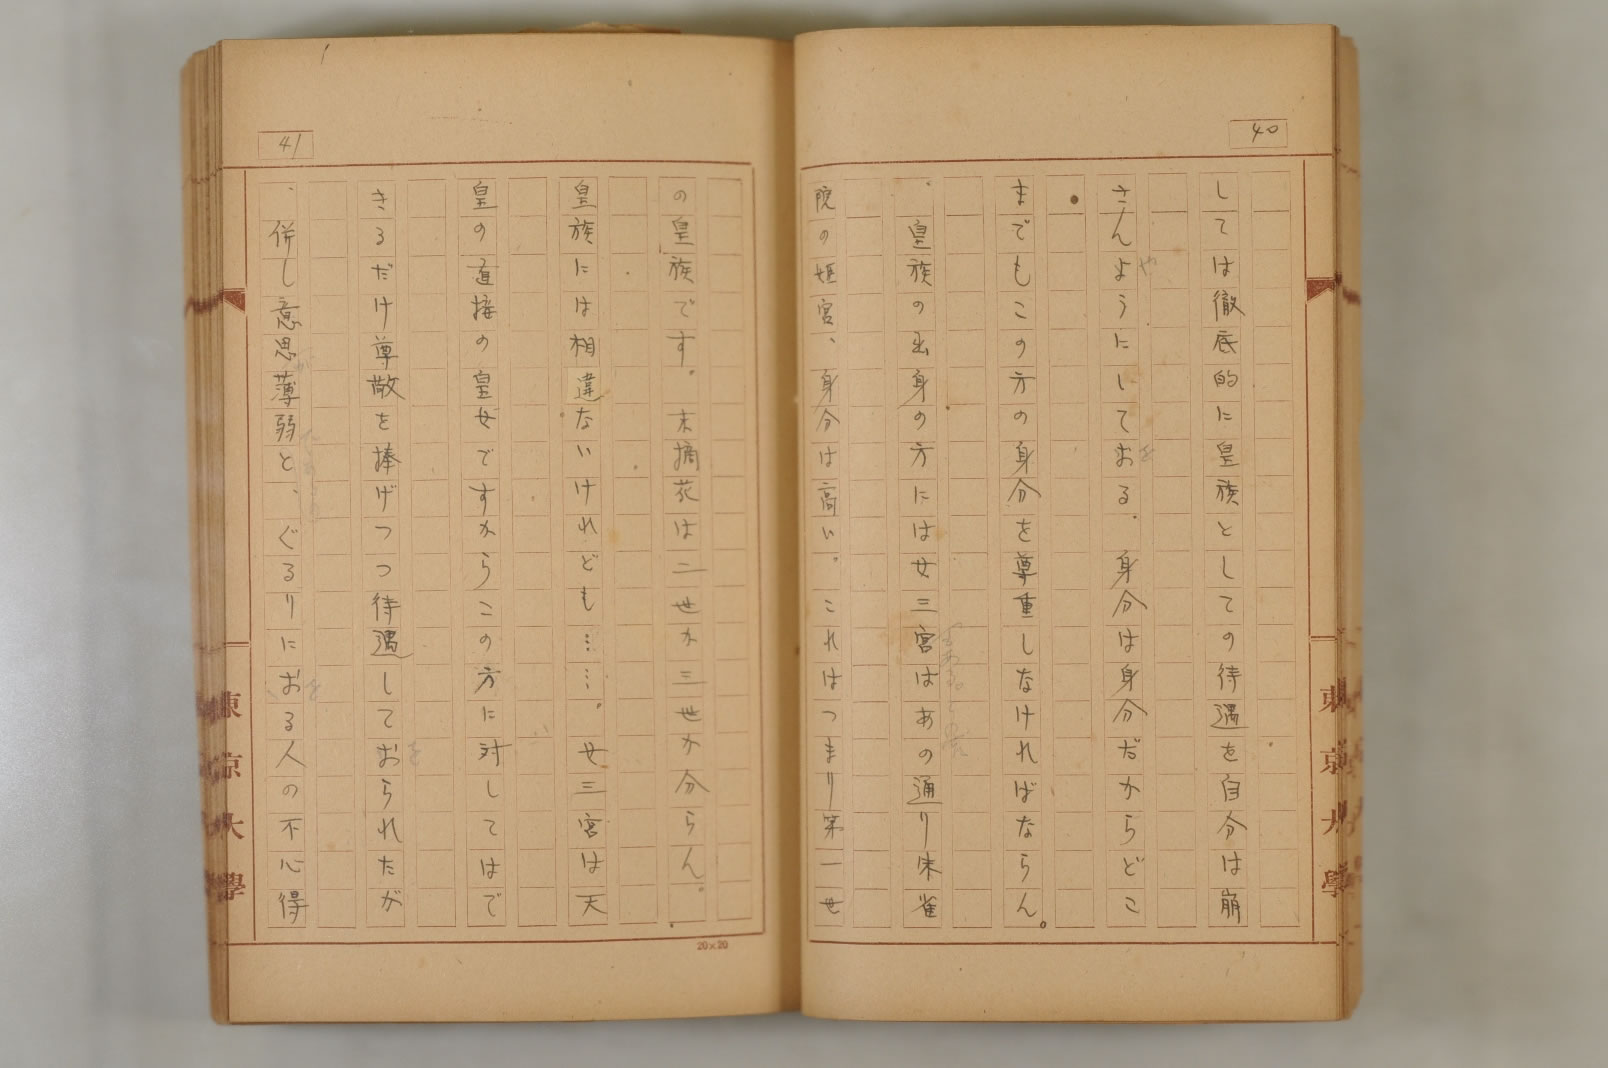 40
しては徹底的に皇族としての待遇を自分は崩
さんようにしておる。身分は身分だからどこ
までもこの方の身分を尊重しなければならん。
、皇族の出身の方には女三宮はあの通り朱雀
院の姫宮、身分は高い。これはつまり第一世
東京大學
41
の皇族です。末摘花は二世か三世か分らん。
皇族には相違ないけれども……。女三宮は天
皇の直接の皇女ですからこの方に対してはで
きるだけ尊敬を捧げつつ待遇しておられたが
、併し意思薄弱と、ぐるりにおる人の不心得
20×20
東京大學